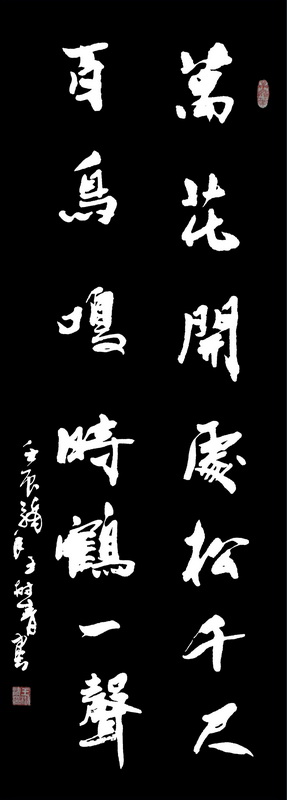 萬花開處松千尺
百鳥鳴時鶴一聲
壬辰